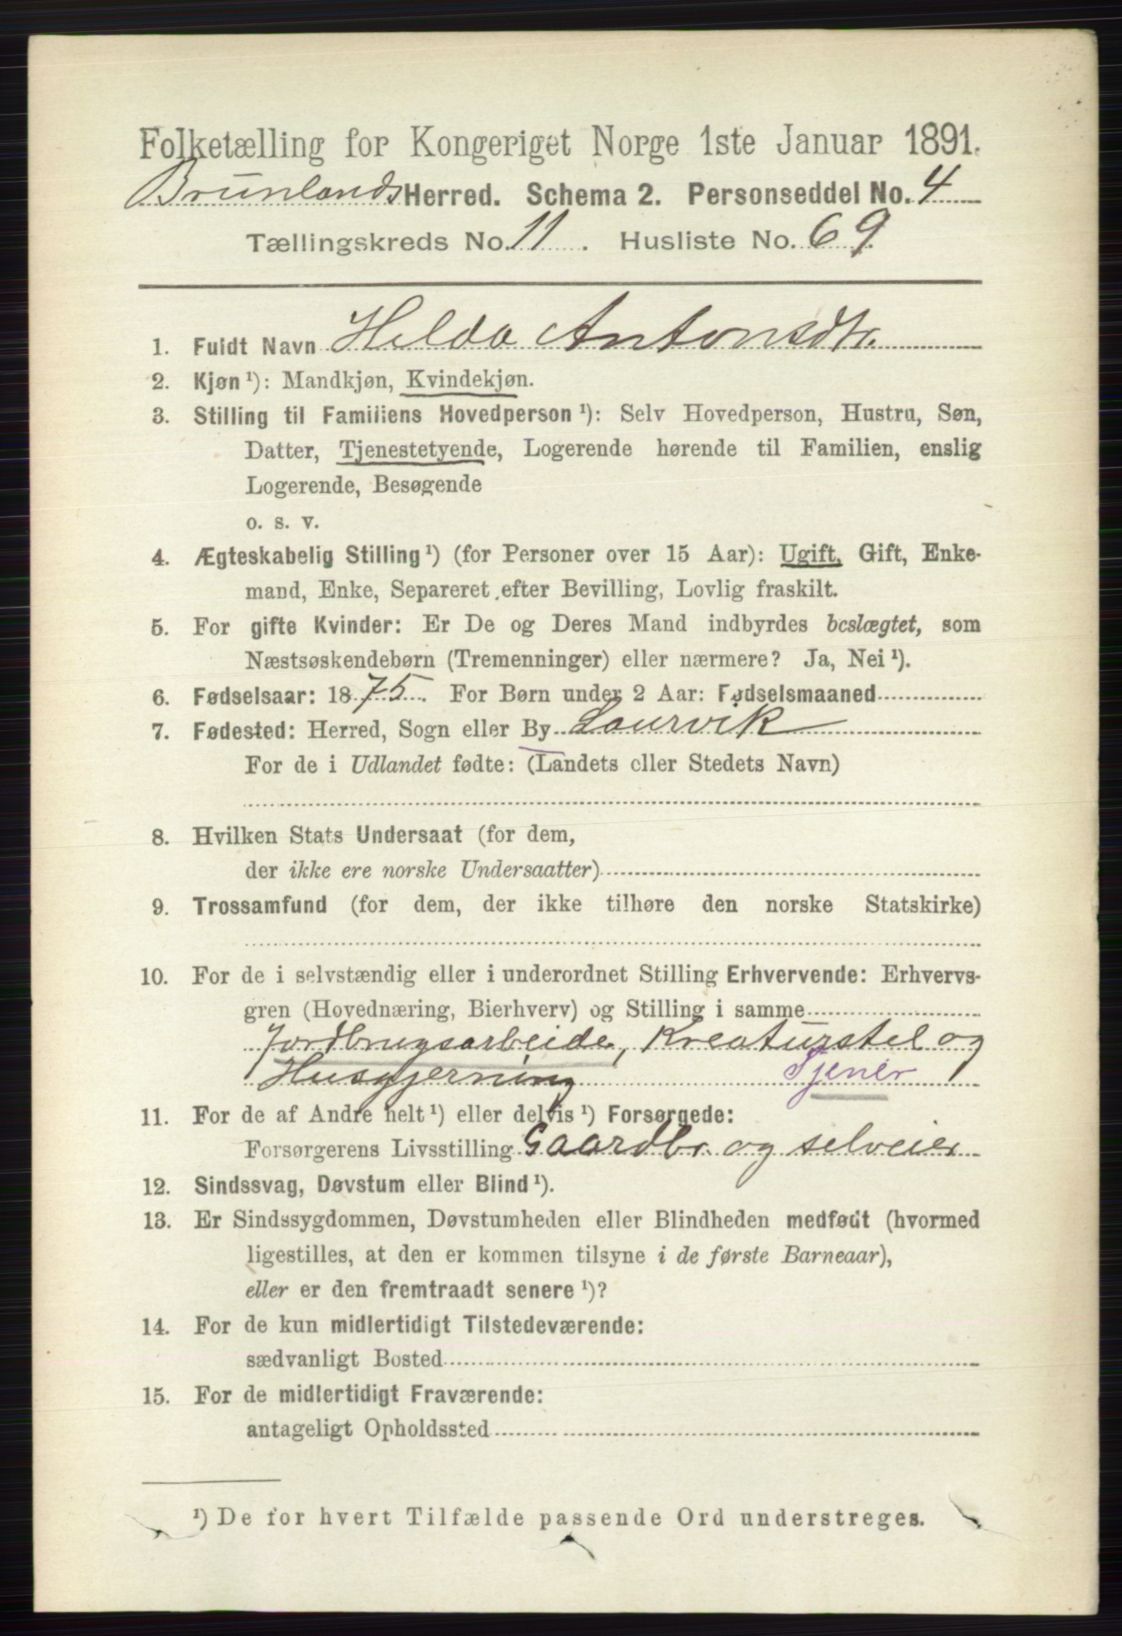 Folketælling for Kongeriget Norge 1ste Januar 1891.
Brunlands Herred. Schema 2. Personseddel No. 4
Tællingskreds No. 11. Husliste No. 69.
1. Fuldt Navn Hilda Antonsdtr.
2. Kjøn ¹): Mandkjøn, Kvindekjøn.
3. Stilling til Familiens Hovedperson ¹): Selv Hovedperson, Hustru, Søn,
Datter, Tjenestetyende, Logerende hørende til Familien, enslig
Logerende, Besøgende
o. s. v.
4. Ægteskabelig Stilling ¹) (for Personer over 15 Aar): Ugift, Gift, Enke-
mand, Enke, Separeret efter Bevilling, Lovlig fraskilt.
5. For gifte Kvinder: Er De og Deres Mand indbyrdes beslægtet, som
Næstsøskendebørn (Tremenninger) eller nærmere? Ja, Nei ¹).
6. Fødselsaar: 1875. For Børn under 2 Aar: Fødselsmaaned
7. Fødested: Herred, Sogn eller By Laurvik
For de i Udlandet fødte: (Landets eller Stedets Navn)
8. Hvilken Stats Undersaat (for dem,
der ikke ere norske Undersaatter)
9. Trossamfund (for dem, der ikke tilhøre den norske Statskirke)
10. For de i selvstændig eller i underordnet Stilling Erhvervende: Erhvervs-
gren (Hovednæring, Bierhverv) og Stilling i samme
Jordbrugsarbeide, Kreaturstel og
Husgjerning Tjener
11. For de af Andre helt ¹) eller delvis ¹) Forsørgede:
Forsørgerens Livsstilling Gaardbr. og selveier
12. Sindssvag, Døvstum eller Blind ¹).
13. Er Sindssygdommen, Døvstumheden eller Blindheden medfødt (hvormed
ligestilles, at den er kommen tilsyne i de første Barneaar),
eller er den fremtraadt senere ¹)?
14. For de kun midlertidigt Tilstedeværende:
sædvanligt Bosted
15. For de midlertidigt Fraværende:
antageligt Opholdssted
¹) De for hvert Tilfælde passende Ord understreges.